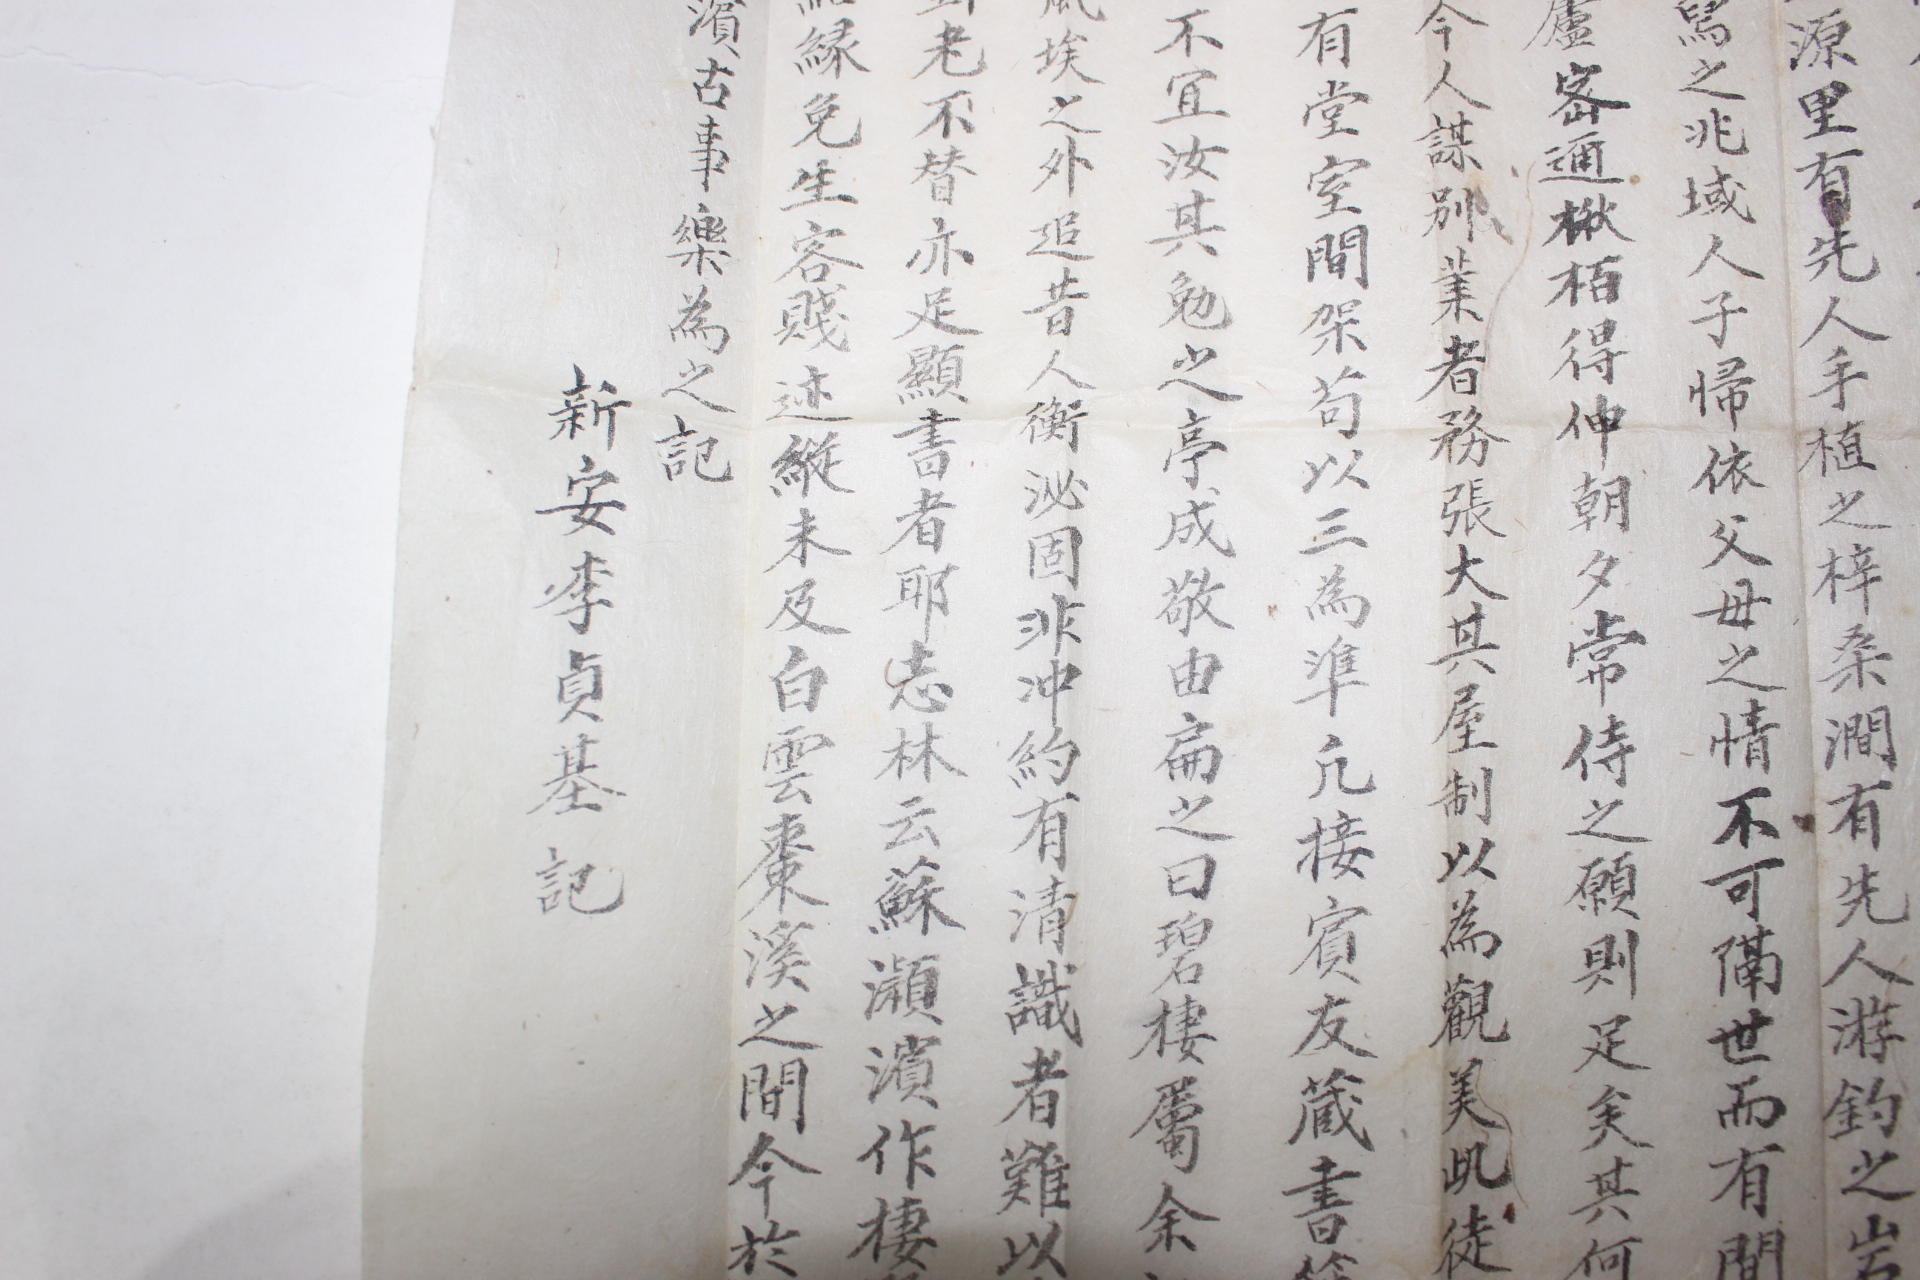 源里有先人手植之梓桑澗有先人游釣之岩
寫之兆域人子帰依父母之情不可隔世而有間
廬密通楸栢得伸朝夕常侍之願則足矣其何
今人謀別業者務張大其屋制以為觀美此徒
有堂室間架苟以三為準凢接賓友蔵書
不宜汝其勉之亭成敬由扁之曰碧棲屬余
風埃之外追昔人衡泌固非冲約有清識者難以
老不替亦足顯書者耶志林云蘇瀕濱作棲
緣免生客賤迹縱未及白雲棗溪之間今於
濱古事樂為之記
新安李貞基記